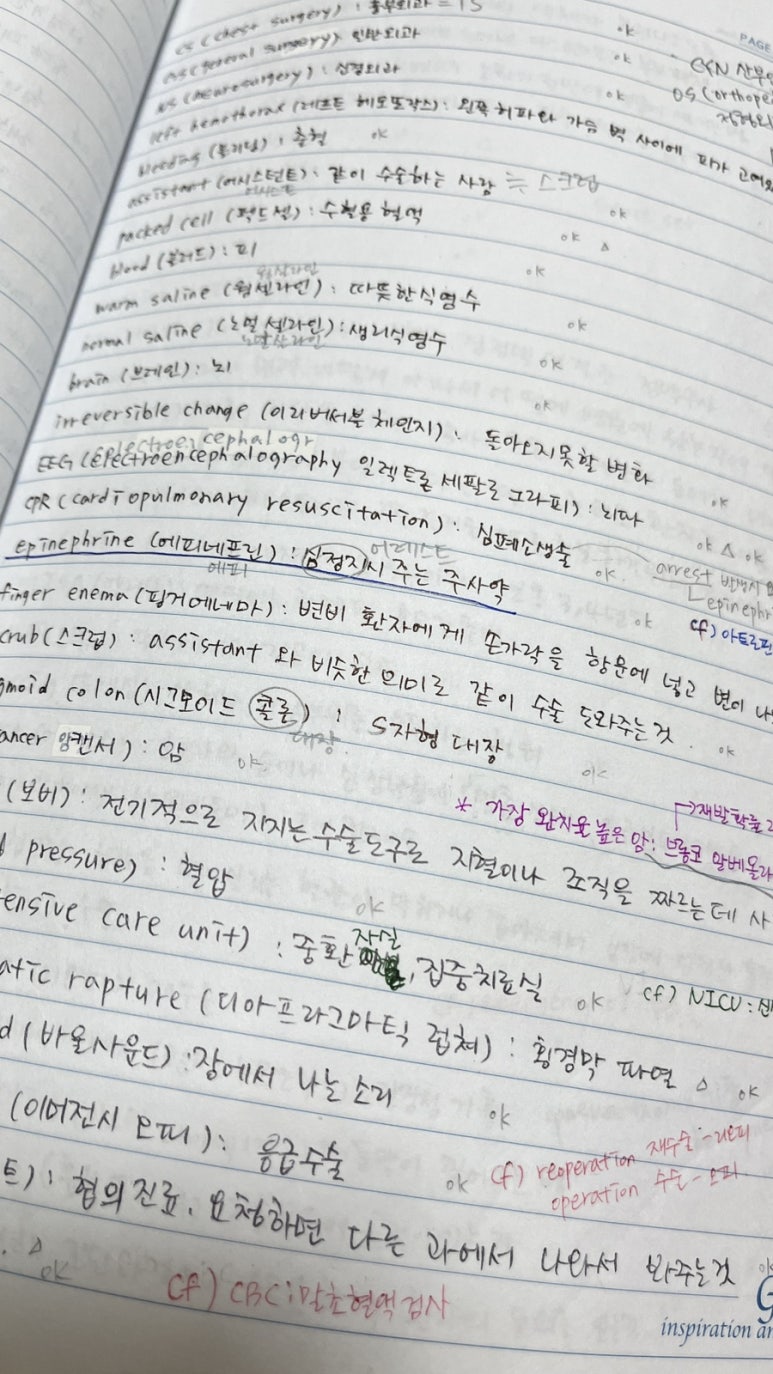 CS (chest surgery) : 흉부외과 = TS
ok
PAGE
GS (general surgery) 일반외과
ok
NS (neurosurgery) : 신경외과
ok
OS (orthope
left hemothorax (레프트 헤모또락스) : 왼쪽 허파와 가슴 벽 사이에 피가 고여
bleeding (블리딩) : 출혈 ok
assistant (어시스턴트) : 같이 수술하는 사람 ≒ 스크럽
어시스트
ok
packed cell (팩드셀) : 수혈용 혈액
ok △
blood (블러드) : 피
ok
웜살라인
warm saline (웜셀라인) : 따뜻한 식염수
ok
normal saline (노멀 셀라인) : 생리식염수
노말살라인
ok
brain (브레인) : 뇌
ok
irreversible change (이리버서블 체인지) : 돌아오지못할 변화
ok
electroencephalogr
EEG (Electroencephalography 일렉트로 세팔로 그라피) : 뇌파
ok △ ok
CPR (cardiopulmonary resuscitation) : 심폐소생술
ok
arrest 발생시
epinephr
어레스트
epinephrine (에피네프린) : 심정지시 주는 주사약
에피
ok
cf) 아트로핀
finger enema (핑거에네마) : 변비 환자에게 손가락을 항문에 넣고 변이 나
crub (스크럽) : assistant 와 비슷한 의미로 같이 수술 도와주는것.
ok
gmoid colon (시그모이드 콜론) : S자형 대장
대장
ok
ancer 암캔서) : 암
ok
→재발확률
* 가장 완치율 높은 암 : 브롱코 알베올라
(보비) : 전기적으로 지지는 수술도구로 지혈이나 조직을 짜르는데 사
pressure) : 혈압
ok
ensive care unit) : 중환자실, 집중치료실
ok
cf) NICU : 신
atic rapture (디아프라그마틱 럽쳐) : 횡경막 파열 △ ok
d (바울사운드) : 장에서 나는 소리
ok
(이머전시 오피) : 응급수술
ok
cf) reoperation 재수술 - 리오피
operation 수술 - 오피
트) : 협의진료. 요청하면 다른 과에서 나와서 봐주는것
ok
△ ok
cf) CBC : 말초혈액검사
inspiration an